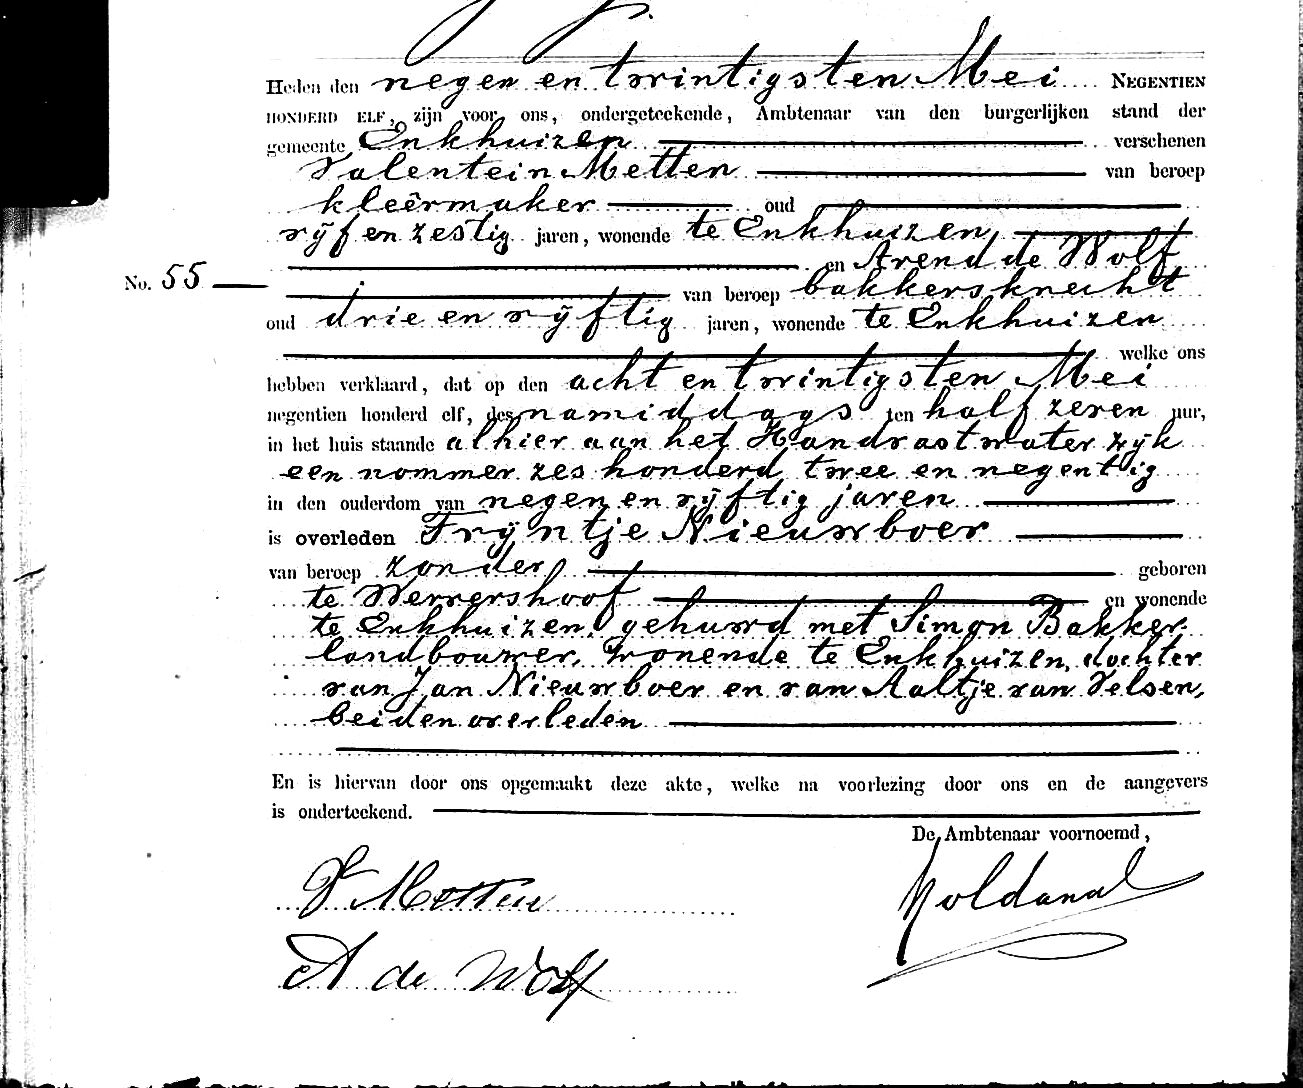 Heden den negen en twintigsten Mei NEGENTIEN
HONDERD ELF, zijn voor ons, ondergeteekende, Ambtenaar van den burgerlijken stand der
gemeente Enkhuizen verschenen
Valentein Metten van beroep
kleêrmaker oud
vijf en zestig jaren, wonende te Enkhuizen
en Arend de Wolf
No. 55 van beroep bakkersknecht
oud drie en vijftig jaren, wonende te Enkhuizen
welke ons
hebben verklaard, dat op den acht en twintigsten Mei
negentien honderd elf, des namiddags ten half zeven uur,
in het huis staande alhier aan het Handvastwater wijk
een nommer zes honderd twee en negentig
in den ouderdom van negen en vijftig jaren
is overleden Trijntje Nieuwboer
van beroep zonder geboren
te Wervershoof en wonende
te Enkhuizen, gehuwd met Simon Bakker
landbouwer, wonende te Enkhuizen, dochter
van Jan Nieuwboer en van Aaltje van Velsen,
beiden overleden
En is hiervan door ons opgemaakt deze akte, welke na voorlezing door ons en de aangevers
is onderteekend.
De Ambtenaar voornoemd,
V Metten
A de Wolf